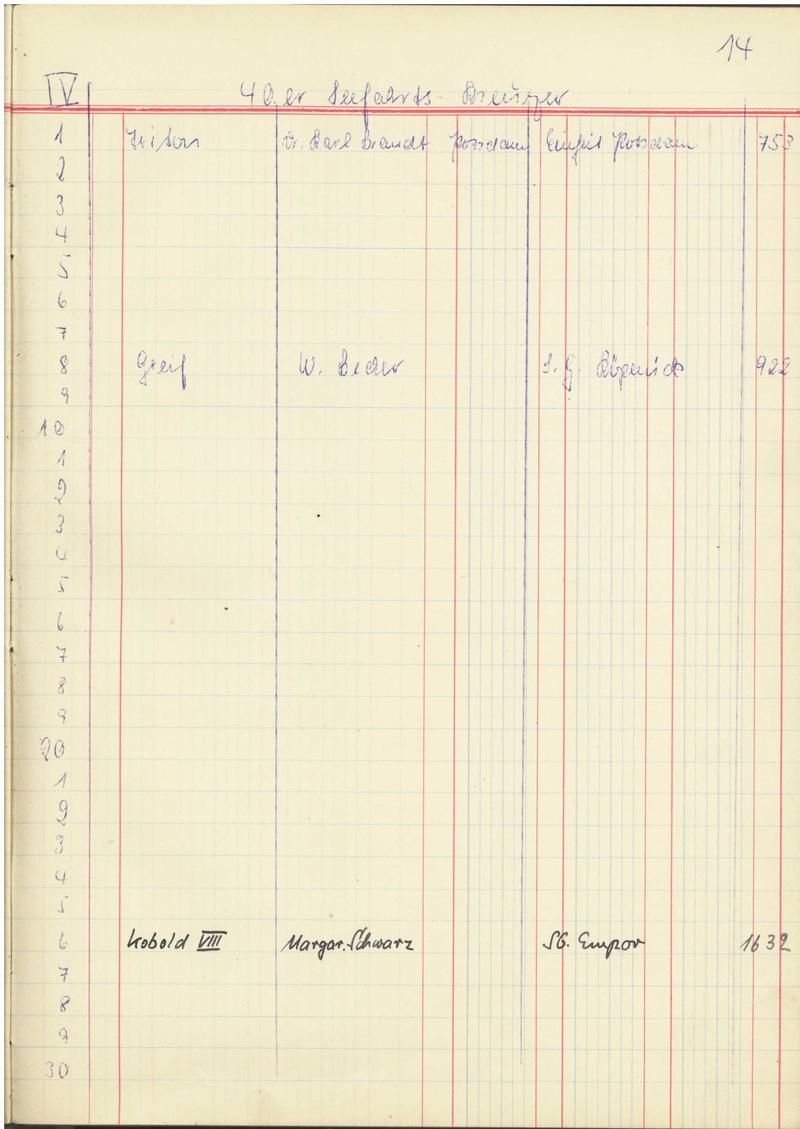 14
IV 40.er Seefahrts- Kreuzer
1 Triton Dr. Karl Brandt Potsdam Einheit Potsdam 753
2
3
4
5
6
7
8 Greif W. S. G. Köpenick 922
9
10
1
2
3
4
5
6
7
8
9
20
1
2
3
4
5
6 Kobold VIII Margar. Schwarz SG. Empor 1632
7
8
9
30